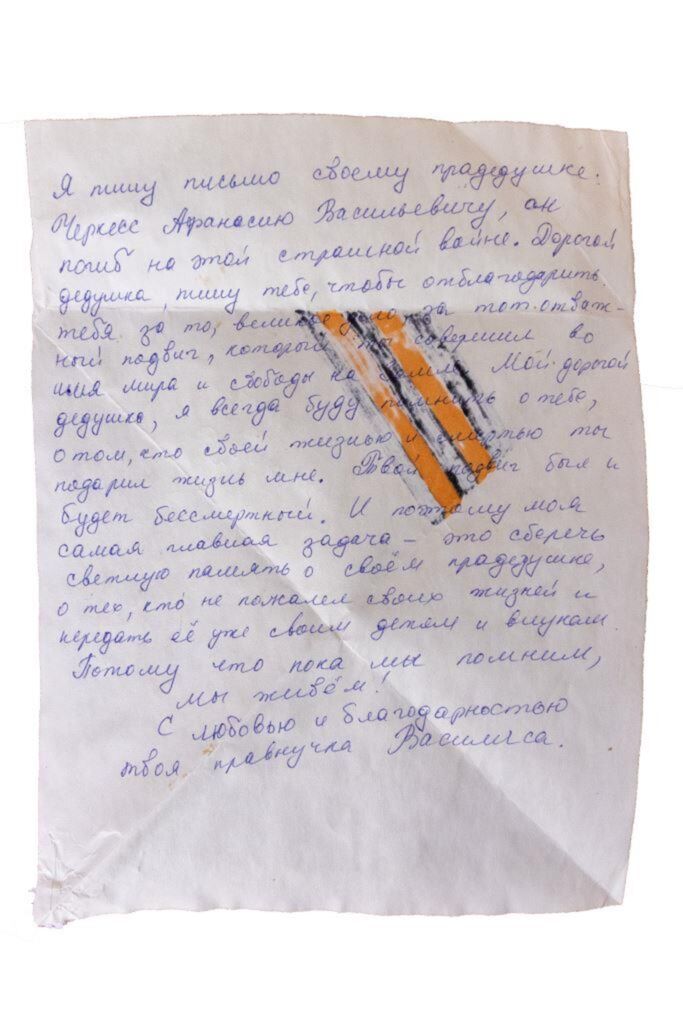 Я пишу письмо своему прадедушке.
Черкесс Афанасию Васильевичу, он
погиб на этой страшной войне. Дорогой
дедушка, пишу тебе, чтобы отблагодарить
тебя за то, за тот отваж-
ный подвиг, который ты совершил во
имя мира и свободы на земле. Мой дорогой
дедушка, я всегда буду помнить о тебе,
о том, что своей жизнью и смертью ты
подарил жизнь мне. Твой подвиг был и
будет бессмертный. И поэтому моя
самая главная задача - это сберечь
светлую память о своём прадедушке,
о тех, кто не пожалел своих жизней и
передать её уже своим детям и внукам.
Потому что пока мы помним,
мы живём!
С любовью и благодарностью
твоя правнучка Василиса.